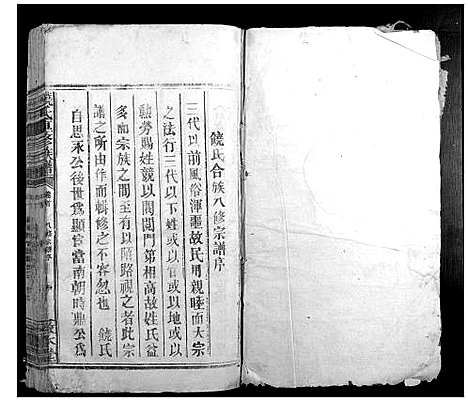 饒氏合族八修宗譜序
三代以前風俗渾噩故民用親睦而大宗
之法行三代以下姓或以官或以地或以
勳勞賜姓競以閥閱門第相高故姓氏益
多而宗族之間至有以陌路視之者此宗
譜之所由作而輯修之不容忽也 饒氏
自思承公後世為顯官當南朝時鼎公為
氏重修族譜
八修宗譜序